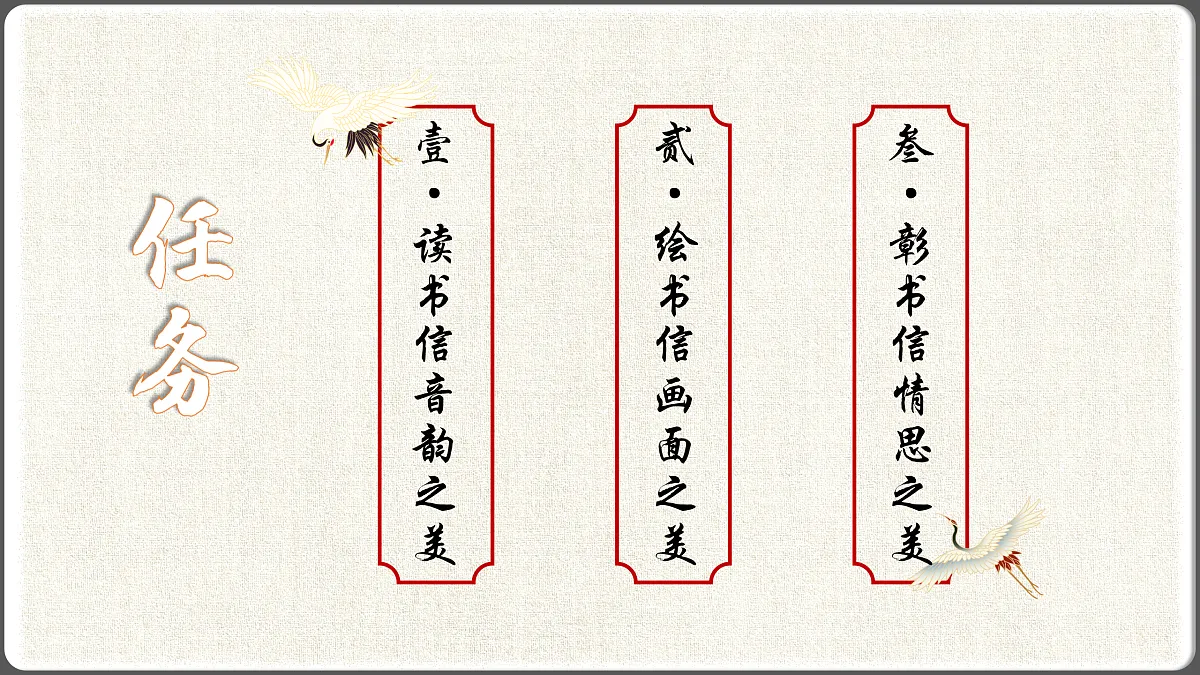 任务
壹·读书信音韵之美
贰·绘书信画面之美
叁·彰书信情思之美